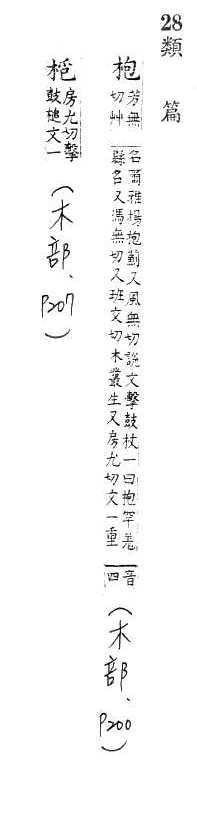 28類篇
枹 芳無切艸名爾雅楊枹薊又風無切說文擊鼓杖一曰枹罕羌縣名又馮無切又班交切木叢生又房尤切文一重音四（木部、P200）
房尤切擊鼓槌文一（木部、P207）